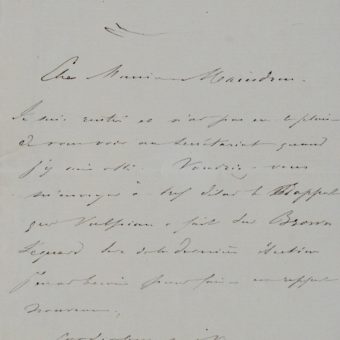 Cher Monsieur Maindron
Je suis rentré et n'ai pas eu le plaisir
de vous voir au secrétariat quand
j'y suis allé. Voudriez-vous
m'envoyer à bref délai le Rapport
que Vulpian a fait sur Brown
Séquard lors de la dernière élection
j'en ai besoin pour faire un rapport
nouveau.